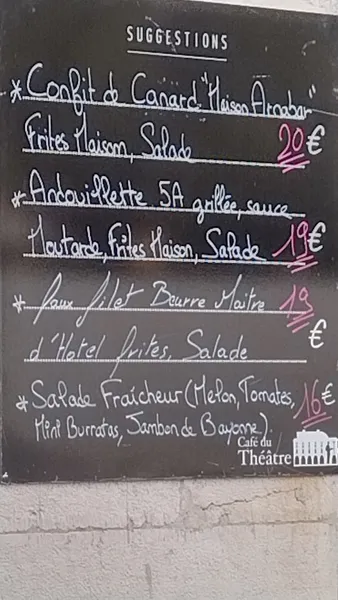 SUGGESTIONS
* Confit de Canard "Maison Arnabar"
Frites Maison, Salade 20€
* Andouillette 5A grillée, sauce
Moutarde, Frites Maison, Salade 19€
* Faux filet Beurre Maitre 19
d'Hotel frites, Salade €
* Salade Fraîcheur (Melon, Tomates, 16€
Mini Burratas, Jambon de Bayonne).
Café du
Théâtre